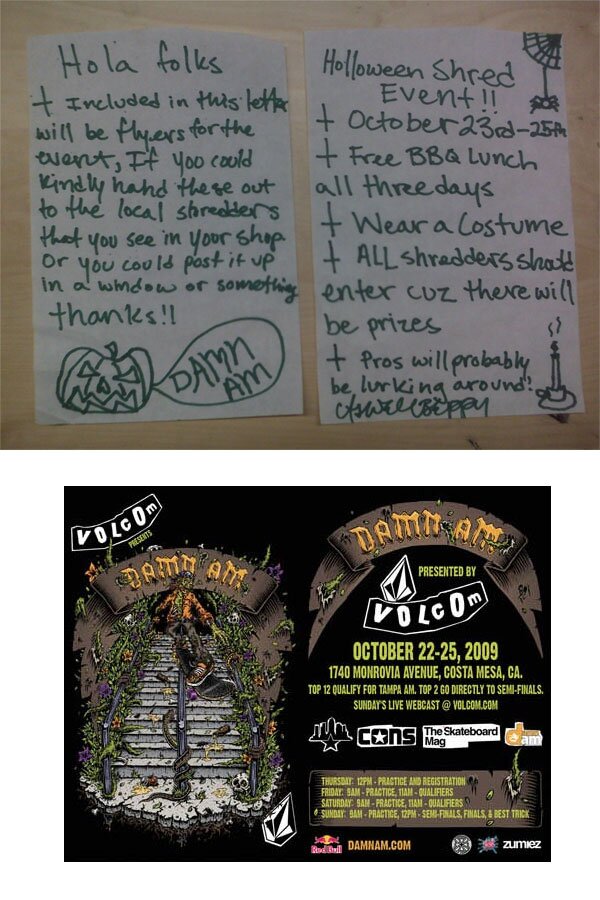 Hola folks
+ Included in this letter
will be flyers for the
event, If you could
kindly hand these out
to the local shredders
that you see in your shop
Or you could post it up
in a window or something
thanks!!
DAMN
AM
Holloween Shred
Event!!
+ October 23rd-25th
+ Free BBQ Lunch
all three days
+ Wear a Costume
+ ALL shredders should
enter cuz there will
be prizes
+ Pros will probably
be lurking around!
VOLCOM
PRESENTS
DAMN AM
DAMN AM
PRESENTED BY
VOLCOM
OCTOBER 22-25, 2009
1740 MONROVIA AVENUE, COSTA MESA, CA.
TOP 12 QUALIFY FOR TAMPA AM. TOP 2 GO DIRECTLY TO SEMI-FINALS.
SUNDAY'S LIVE WEBCAST @ VOLCOM.COM
CONS The Skateboard
Mag
am
THURSDAY: 12PM - PRACTICE AND REGISTRATION
FRIDAY: 9AM - PRACTICE, 11AM - QUALIFIERS
SATURDAY: 9AM - PRACTICE, 11AM - QUALIFIERS
SUNDAY: 9AM - PRACTICE, 12PM - SEMI-FINALS, FINALS, & BEST TRICK
Red Bull DAMNAM.COM zumiez